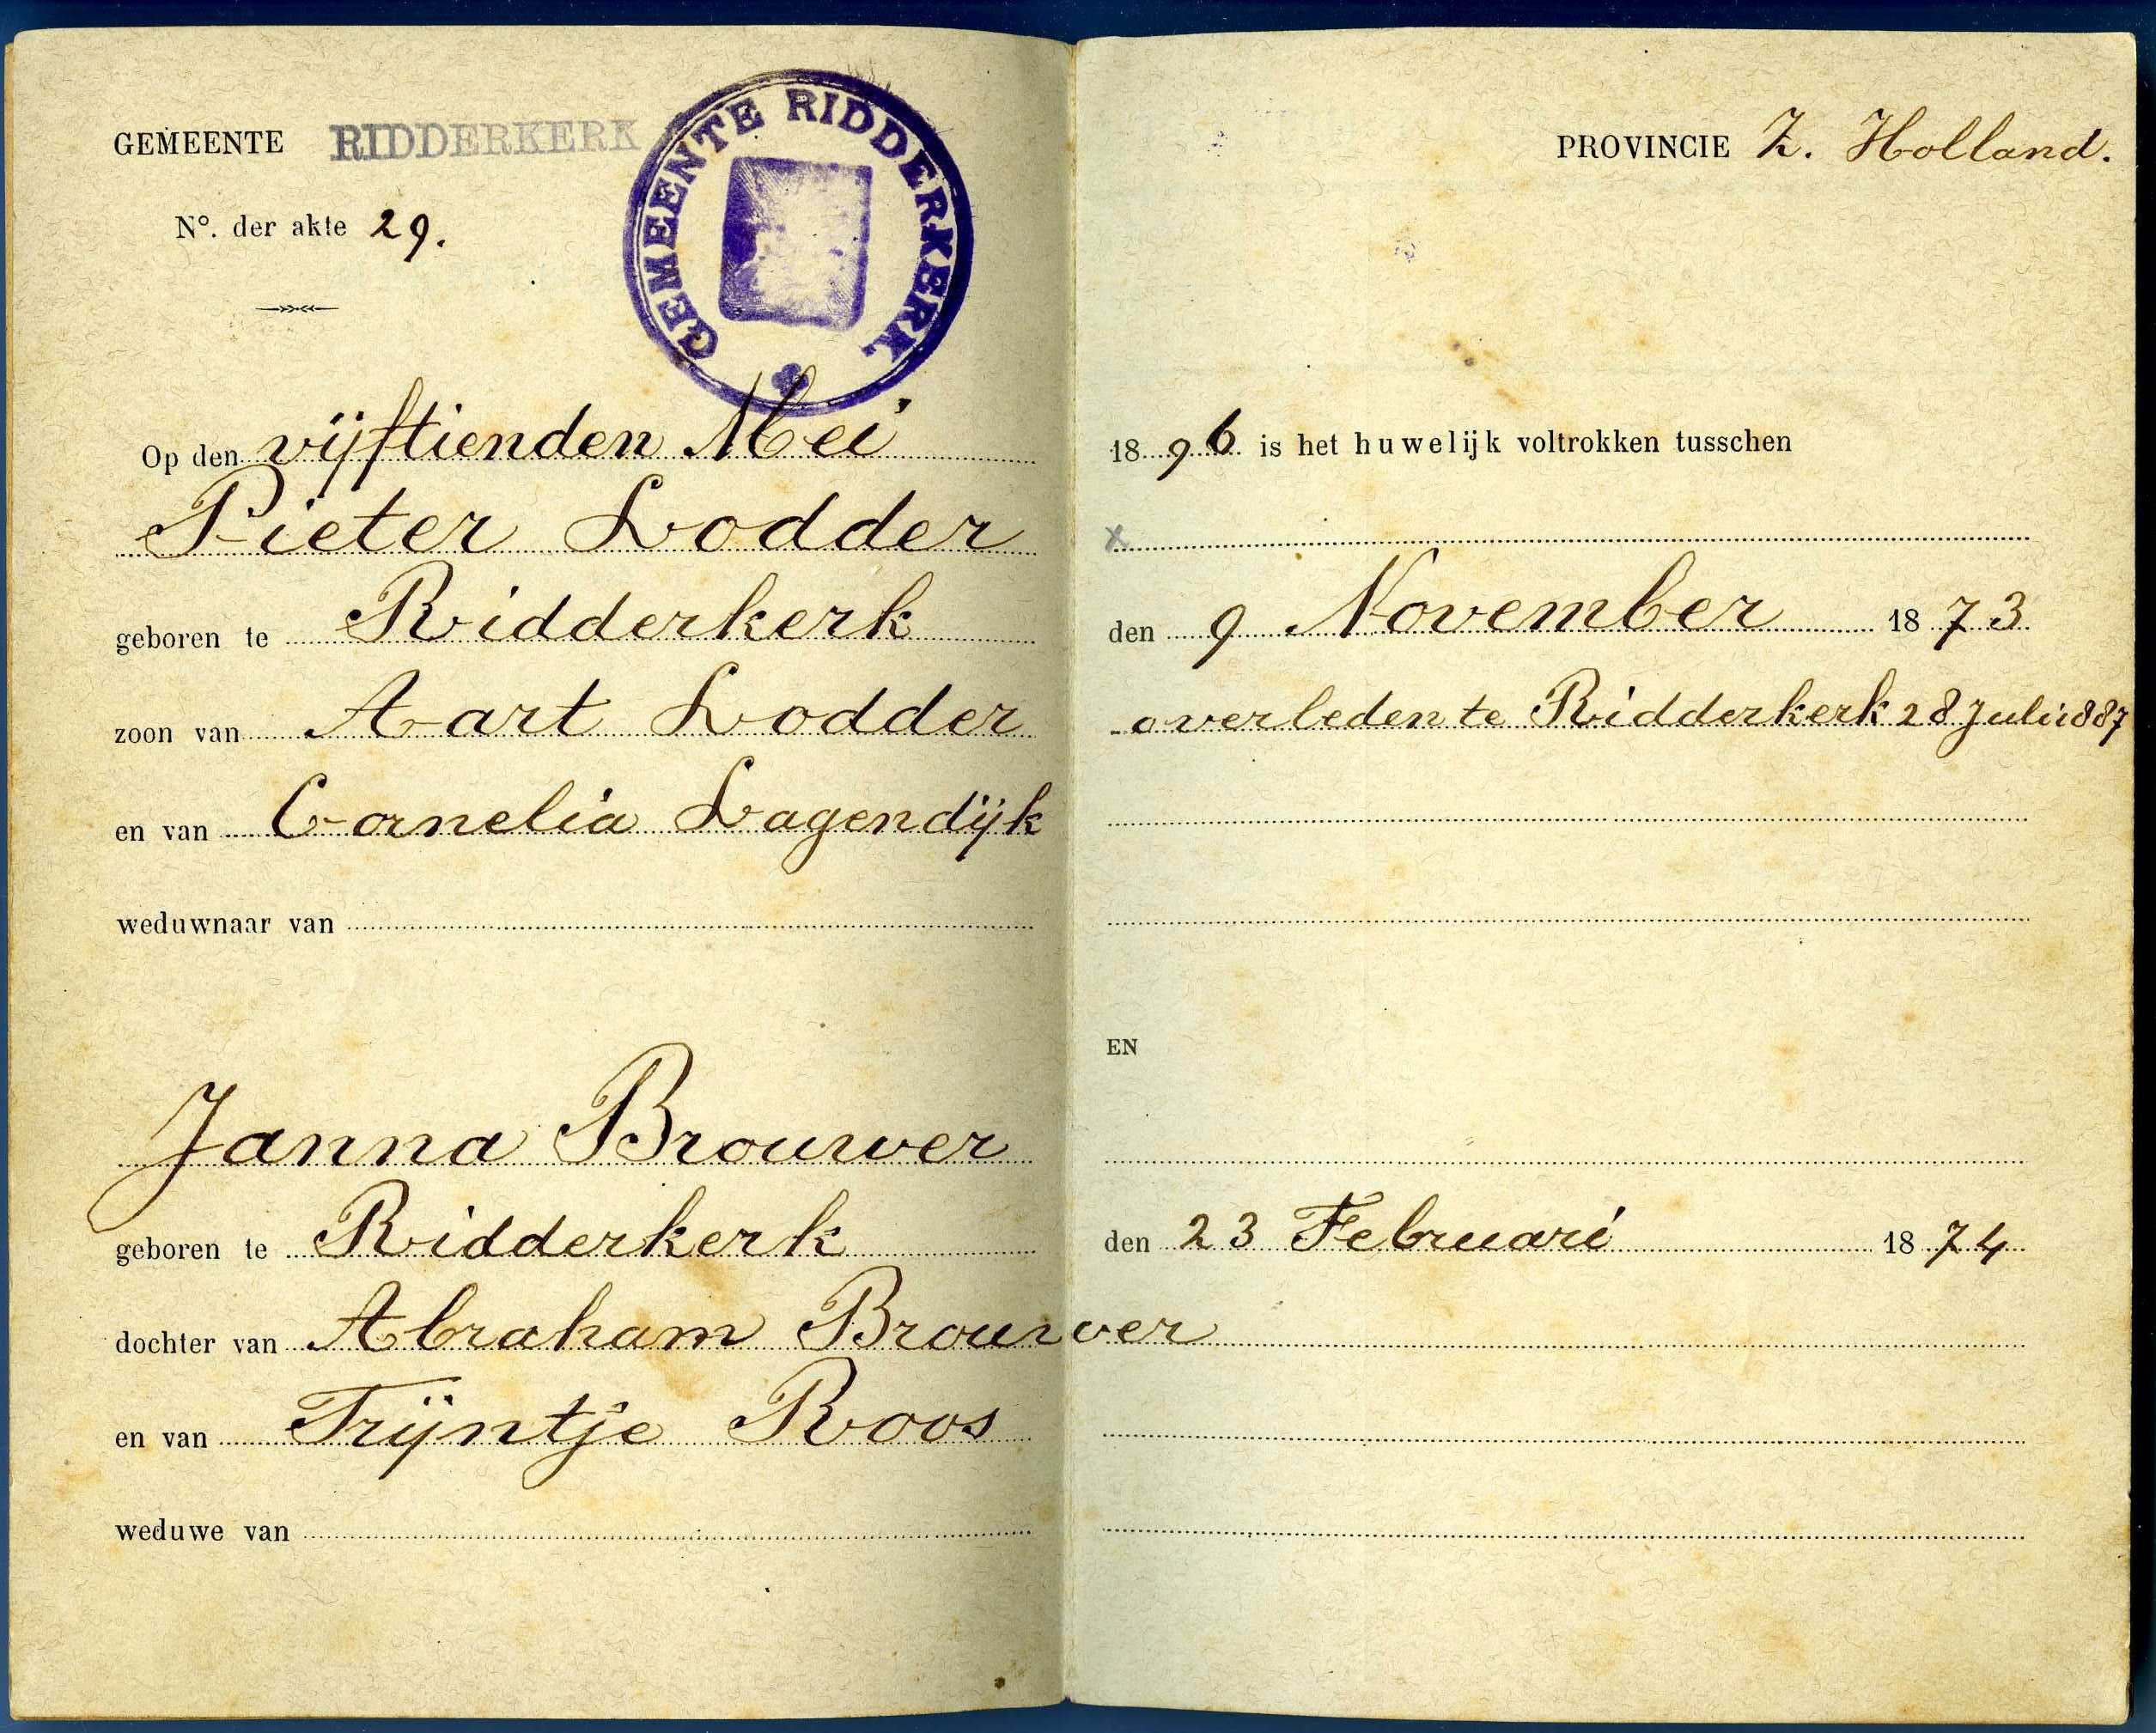 GEMEENTE RIDDERKERK
GEMEENTE RIDDERKERK.
PROVINCIE Z. Holland.
N°. der akte 29.
Op den vijftienden Mei 1896 is het huwelijk voltrokken tusschen
Pieter Lodder
x
geboren te Ridderkerk den 9 November 1873
zoon van Aart Lodder overleden te Ridderkerk 28 Juli 1887
en van Cornelia Lagendijk
weduwnaar van
EN
Janna Brouwer
geboren te Ridderkerk den 23 Februari 1874
dochter van Abraham Brouwer
en van Trijntje Roos
weduwe van